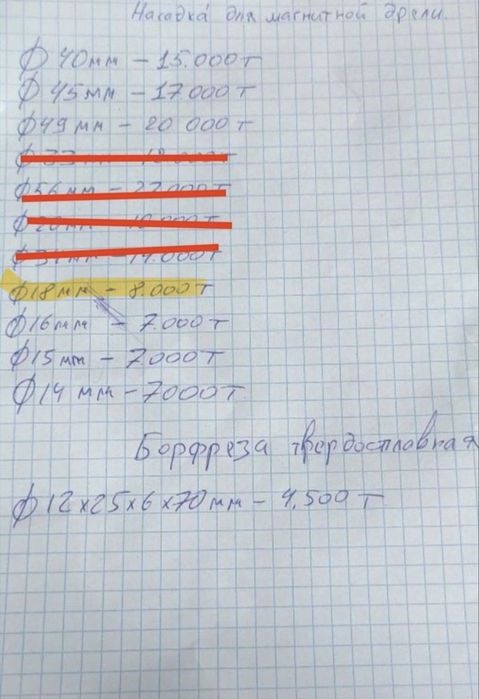 Насадка для магнитной дрели.
Ф 40мм – 15.000т
Ф 45мм – 17000т
Ф49мм – 20 000т
Ф56мм – 22000т
Ф18мм – 8.000т
Ф16мм – 7.000т
Ф15мм – 7000т
Ф14 мм – 7000т
Борфреза твердосплавная
Ф12х25х6х70мм – 4,500т